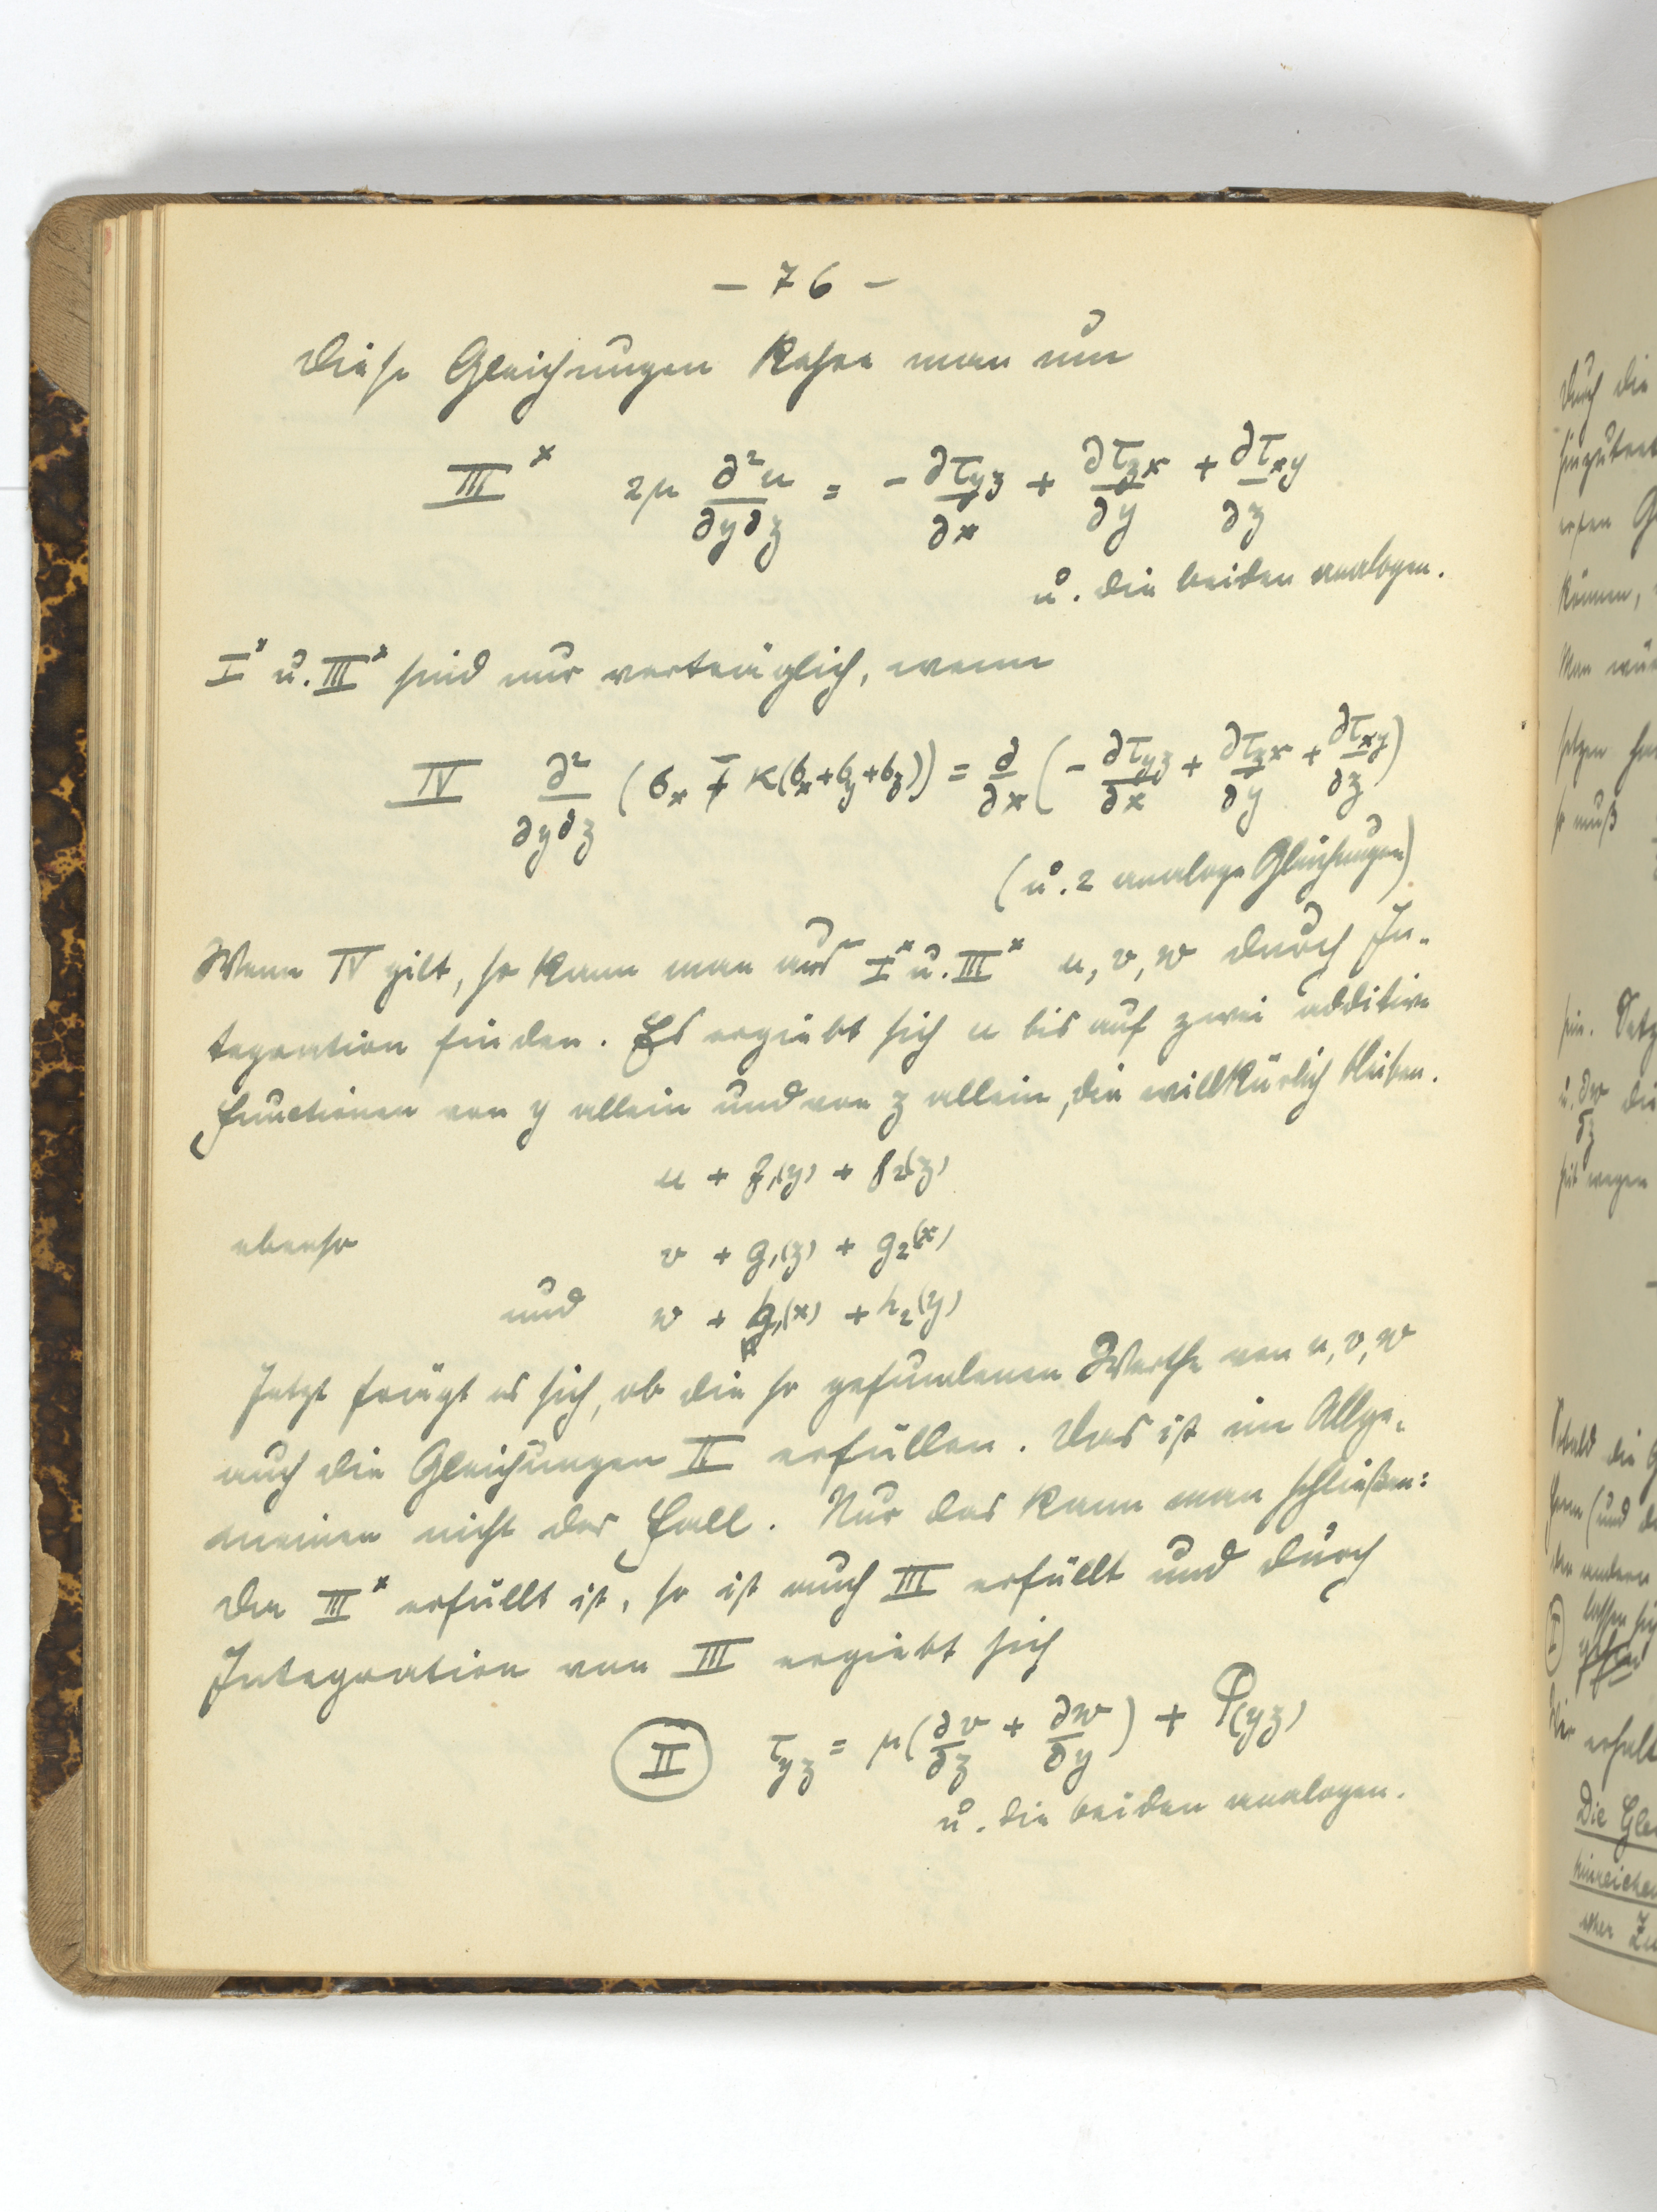 – 76 –
Diese Gleichungen kehre man um
III* 2μ ∂²u/∂y∂z = – ∂τyz/∂x + ∂τzx/∂y + ∂τxy/∂z
u. die beiden analogen.
I* u. III* sind nur verträglich, wenn
IV ∂²/∂y∂z (σx – κ(σx+σy+σz)) = ∂/∂x (– ∂τyz/∂x + ∂τzx/∂y + ∂τxy/∂z)
(u. 2 analoge Gleichungen)
Wenn IV gilt, so kann man aus I* u. III* u, v, w durch In-
tegration finden. Es ergiebt sich u bis auf zwei additive
Functionen von y allein und von z allein, die willkürlich bleiben.
u + f₁(y) + f₂(z)
ebenso v + g₁(z) + g₂(x)
und w + h₁(x) + h₂(y)
Jetzt frägt es sich, ob die so gefundenen Werthe von u, v, w
auch die Gleichungen II erfüllen. Das ist im Allge-
meinen nicht der Fall. Nur das kann man schließen:
Da III* erfüllt ist, so ist auch III erfüllt und durch
Integration von III ergiebt sich
II τyz = μ(∂v/∂z + ∂w/∂y) + Φ(yz)
u. die beiden analogen.
durch die
können,
man
so muß
Satz
∂w/∂z
wegen
Sobald die
(und
der andern
lassen
Wir
Die